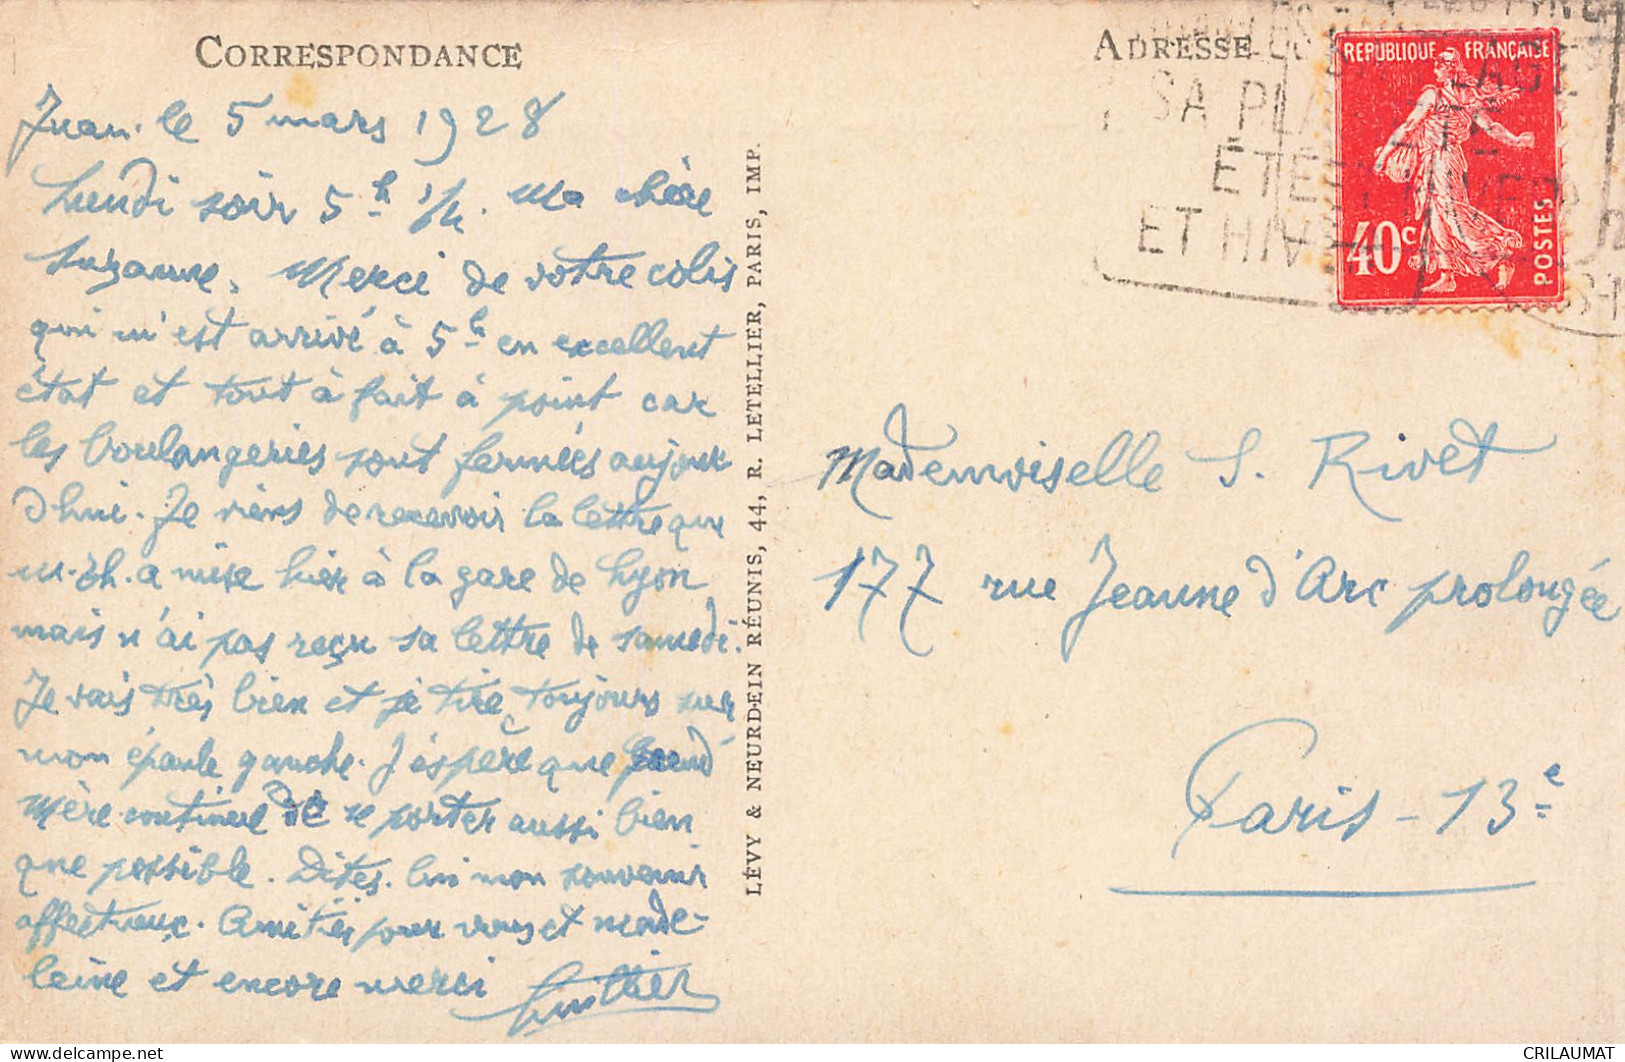 CORRESPONDANCE
Juan. le 5 mars 1928
Lundi soir 5 h 1/4. Ma chère
Suzanne. Merci de votre colis
qui m'est arrivé à 5 h en excellent
état et tout à fait à point car
les boulangeries sont fermées aujour
d'hui. Je viens de recevoir la lettre que
m. Ch. a mise hier à la gare de Lyon
mais n'ai pas reçu sa lettre de samedi.
Je vais très bien et je tire toujours sur
mon épaule gauche. J'espère que grand
Mère continue de se porter aussi bien
que possible. Dites. lui mon souvenir
affectueux. Amitiés pour vous et Made-
leine et encore merci
LÉVY & NEURDEIN RÉUNIS, 44, R. LETELLIER, PARIS, IMP.
ADRESSE
SA PLAGE
ÉTÉ
ET HIVER
REPUBLIQUE FRANÇAISE
40c
POSTES
Mademoiselle S. Rivet
177 rue Jeanne d'Arc prolongée
Paris - 13e
CRILAUMAT